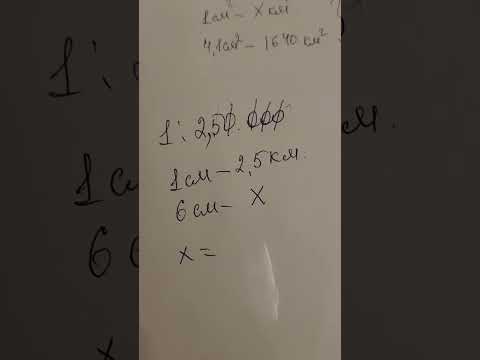 1см² - x км²
4,1см² - 1640 км²
1 : 2,50 000
1см - 2,5 км.
6 см - x
x =